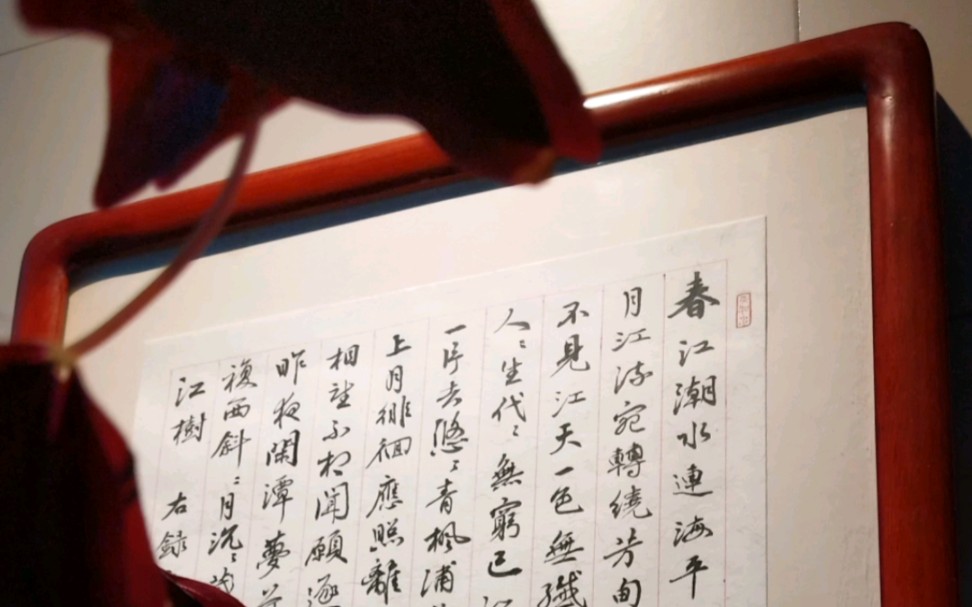 春江潮水連海平
月江流宛轉繞芳甸
不見江天一色無纖
人〻生代〻無窮已
一片去悠〻青楓浦
上月徘徊應照離
相望不相聞願逐
昨夜閑潭夢
複西斜〻月沉〻
江樹 右錄